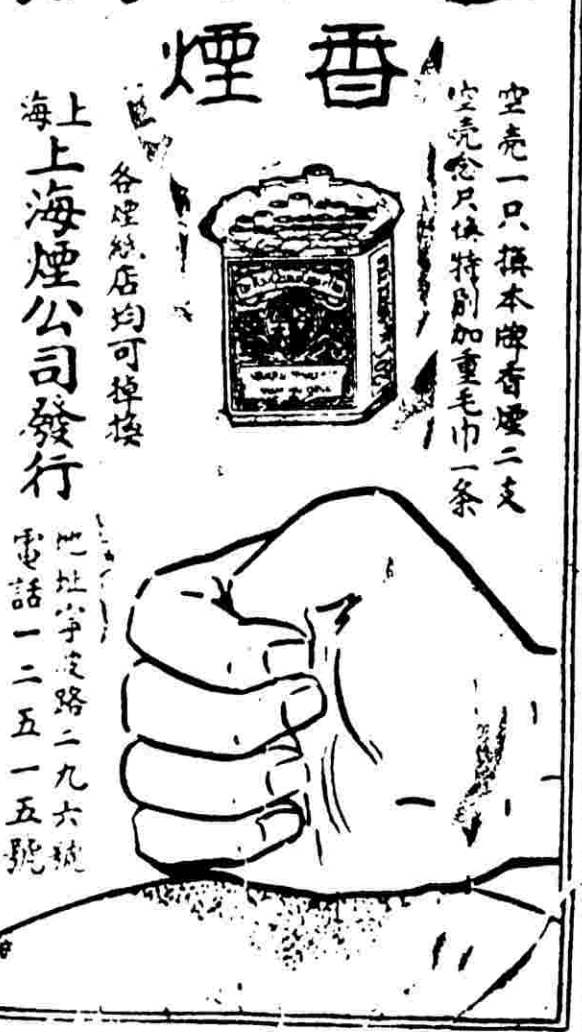 香煙
空壳一只換本牌香煙二支
空壳念只換特別加重毛巾一条
各煙紙店均可掉換
上海
上海煙公司發行
地址寧波路二九六號
電話一二五一五號